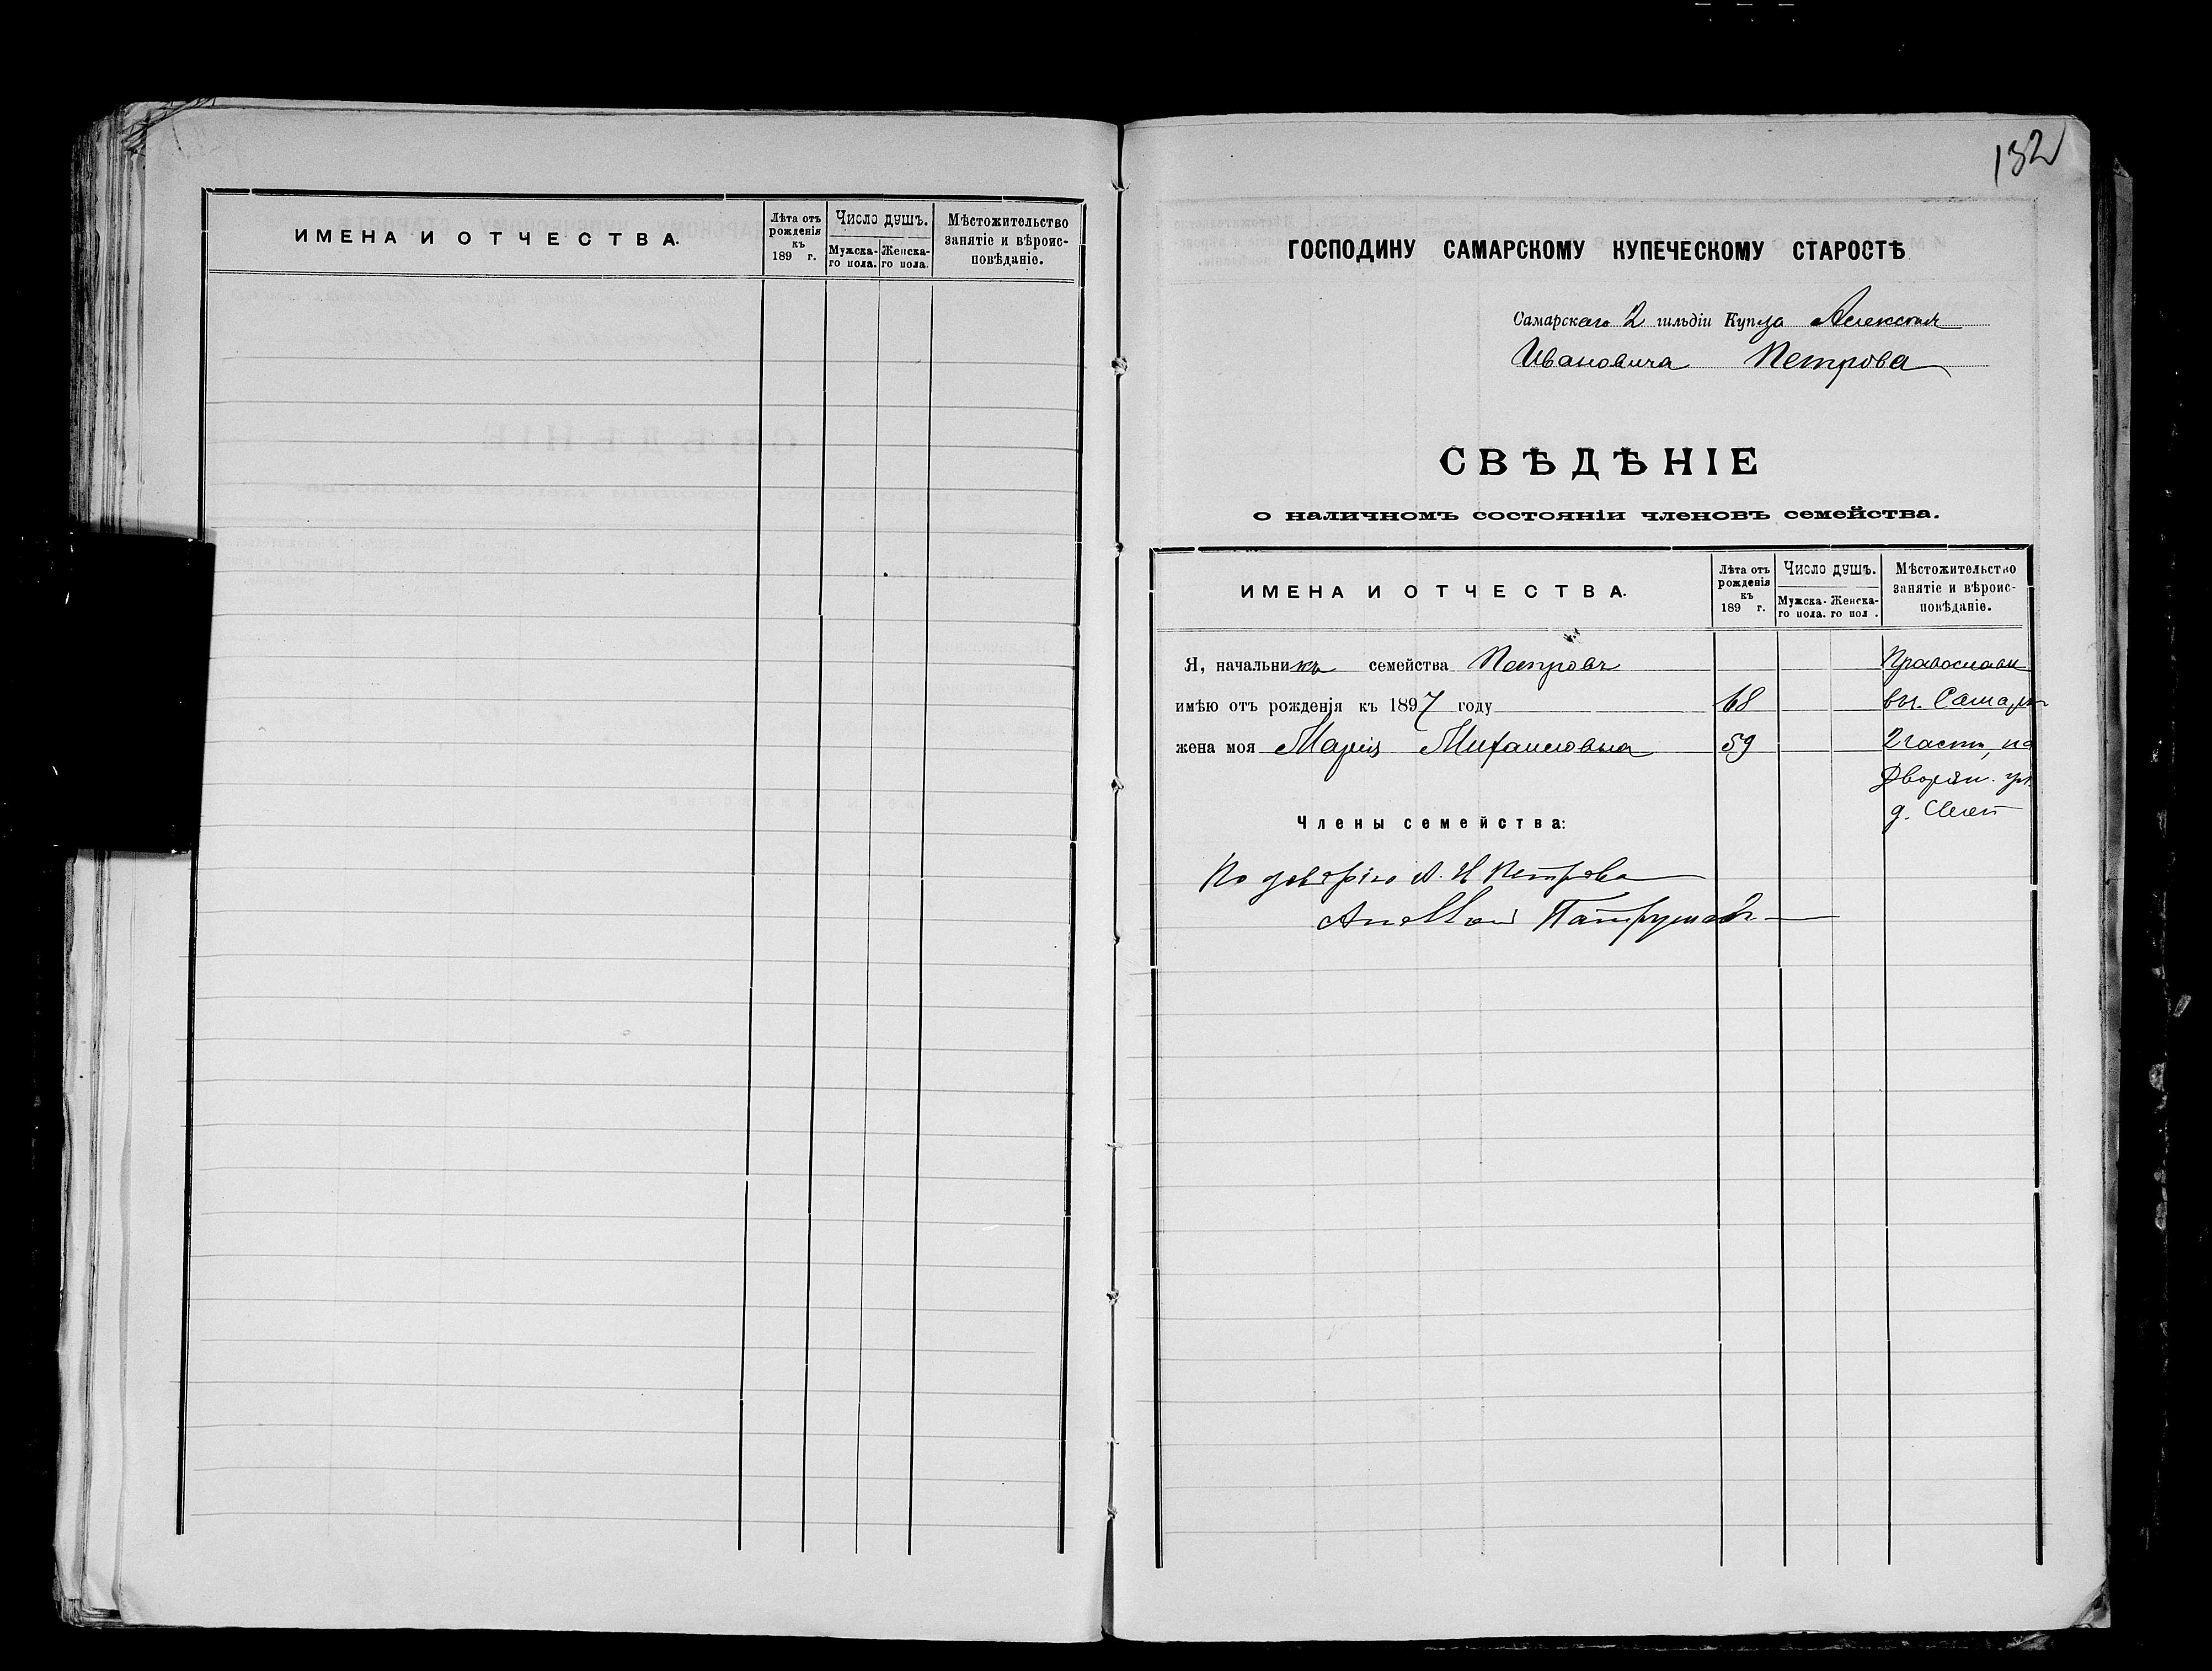 ИМЕНА И ОТЧЕСТВА.
Лѣта отъ рожденія къ 189 г.
Число душъ.
Мужска-го пола.
Женска-го пола.
Мѣстожительство занятіе и вѣроис-повѣданіе.
132
ГОСПОДИНУ САМАРСКОМУ КУПЕЧЕСКОМУ СТАРОСТѢ
Самарскаго 2 гильдіи Купца Алексѣя
Ивановича Петрова
СВѢДѢНІЕ
о наличномъ состояніи членовъ семейства.
ИМЕНА И ОТЧЕСТВА.
Лѣта отъ рожденія къ 189 г.
Число душъ.
Мужска-го пола.
Женска-го пол .
Мѣстожительство занятіе и вѣроис-повѣданіе.
Я, начальникъ семейства Петровъ Православн
имѣю отъ рожденія къ 1897 году 68 въ г. Самарѣ
жена моя Марія Михаиловна 59 2 части, по
Дворян. ул.
д.
Члены семейства:
По довѣрію А. И Петрова